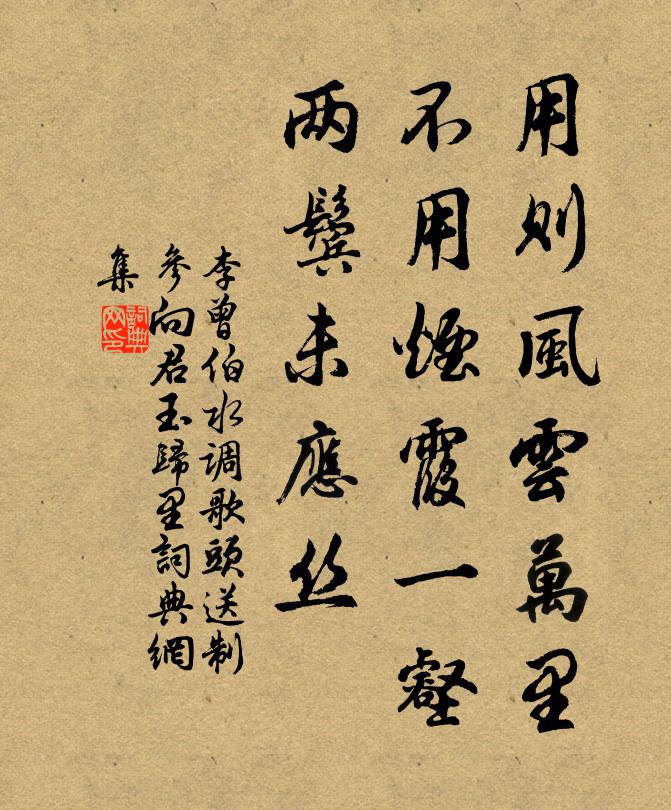 用則風雲萬里
不用煙霞一壑
两鬢未應丝
李曾伯水调歌頭送制
參向君玉歸里詞典網
集
詞典網印